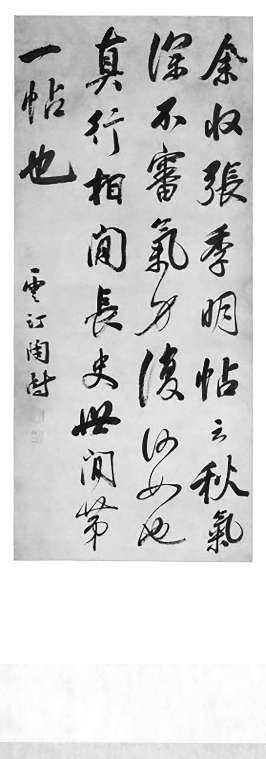 余收張季明帖云秋氣
深不審氣力復何如也
真行相間長史世間第
一帖也
雲汀陶澍